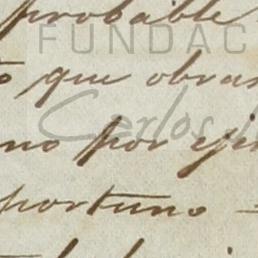 probable
FUNDAC
o que obras
Carlos
no por eje
portuno =